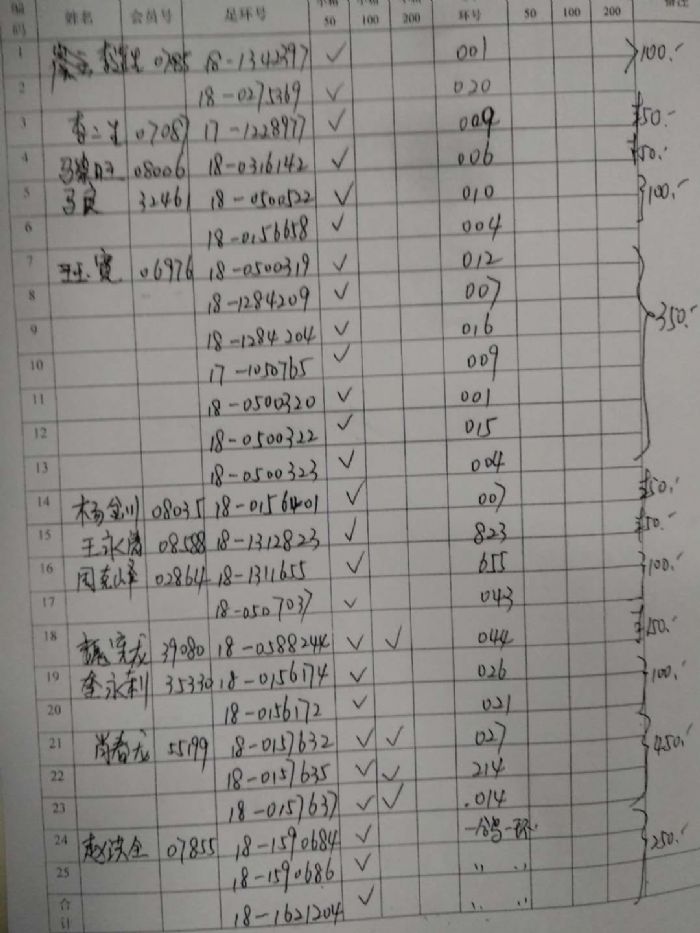 编码 姓名 会员号 足环号 50 100 200 环号 50 100 200 备注
1 0785 18-1342397 ✓ 001 >100.-
2 18-0275369 ✓ 020
3 07087 17-1228977 ✓ 009 50.-
4 08006 18-0316142 ✓ 006 50.-
5 马良 32461 18-0500522 ✓ 010 }100.-
6 18-0156658 ✓ 004
7 06976 18-0500319 ✓ 012
8 18-1284209 ✓ 007
9 18-1284204 ✓ 016 350.-
10 17-1050765 ✓ 009
11 18-0500320 ✓ 001
12 18-0500322 ✓ 015
13 18-0500323 ✓ 004
14 杨金川 08035 18-0156401 ✓ 007 50.-
15 王永 08588 18-1312823 ✓ 823 50.-
16 周克峰 02864 18-1311655 ✓ 655 }100.-
17 18-0507037 ✓ 043
18 39080 18-0588244 ✓ ✓ 044 150.-
19 永利 35330 18-0156174 ✓ 026 }100.-
20 18-0156172 ✓ 021
21 肖春龙 55199 18-0157632 ✓ ✓ 027 450.-
22 18-0157635 ✓ ✓ 214
23 18-0157637 ✓ ✓ .014
24 赵洪全 07855 18-1590684 ✓ 一鸽一环 250.-
25 18-1590686 ✓ 〃 〃
合计 18-1621204 ✓ 〃 〃